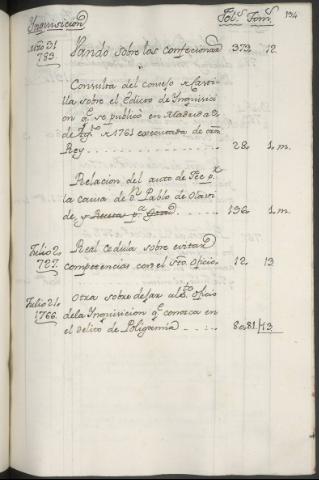 Inquisicion Fol.s Tom.s 134
Mzo 31 Vando sobre las confecionar 373. 12
783
Consulta del consejo de Casti-
lla sobre el Edicto de Inquisici-
on q.e se publicò en Madrid a 9.
de Ag.to de 1761 executado de orn
Rey 28. 1.m.
Relacion del auto de Fee p.r
la causa de D.n Pablo de Olavi-
de, y 196. 1.m.
Julio 2. Real Cedula sobre evitar
727. competencias con el Sto. Oficio. 12. 13
Julio 21. Otra sobre dejar al S.to Oficio
1766. dela Inquisicion q.e conozca en
el delito de Poligamia 80.81 13